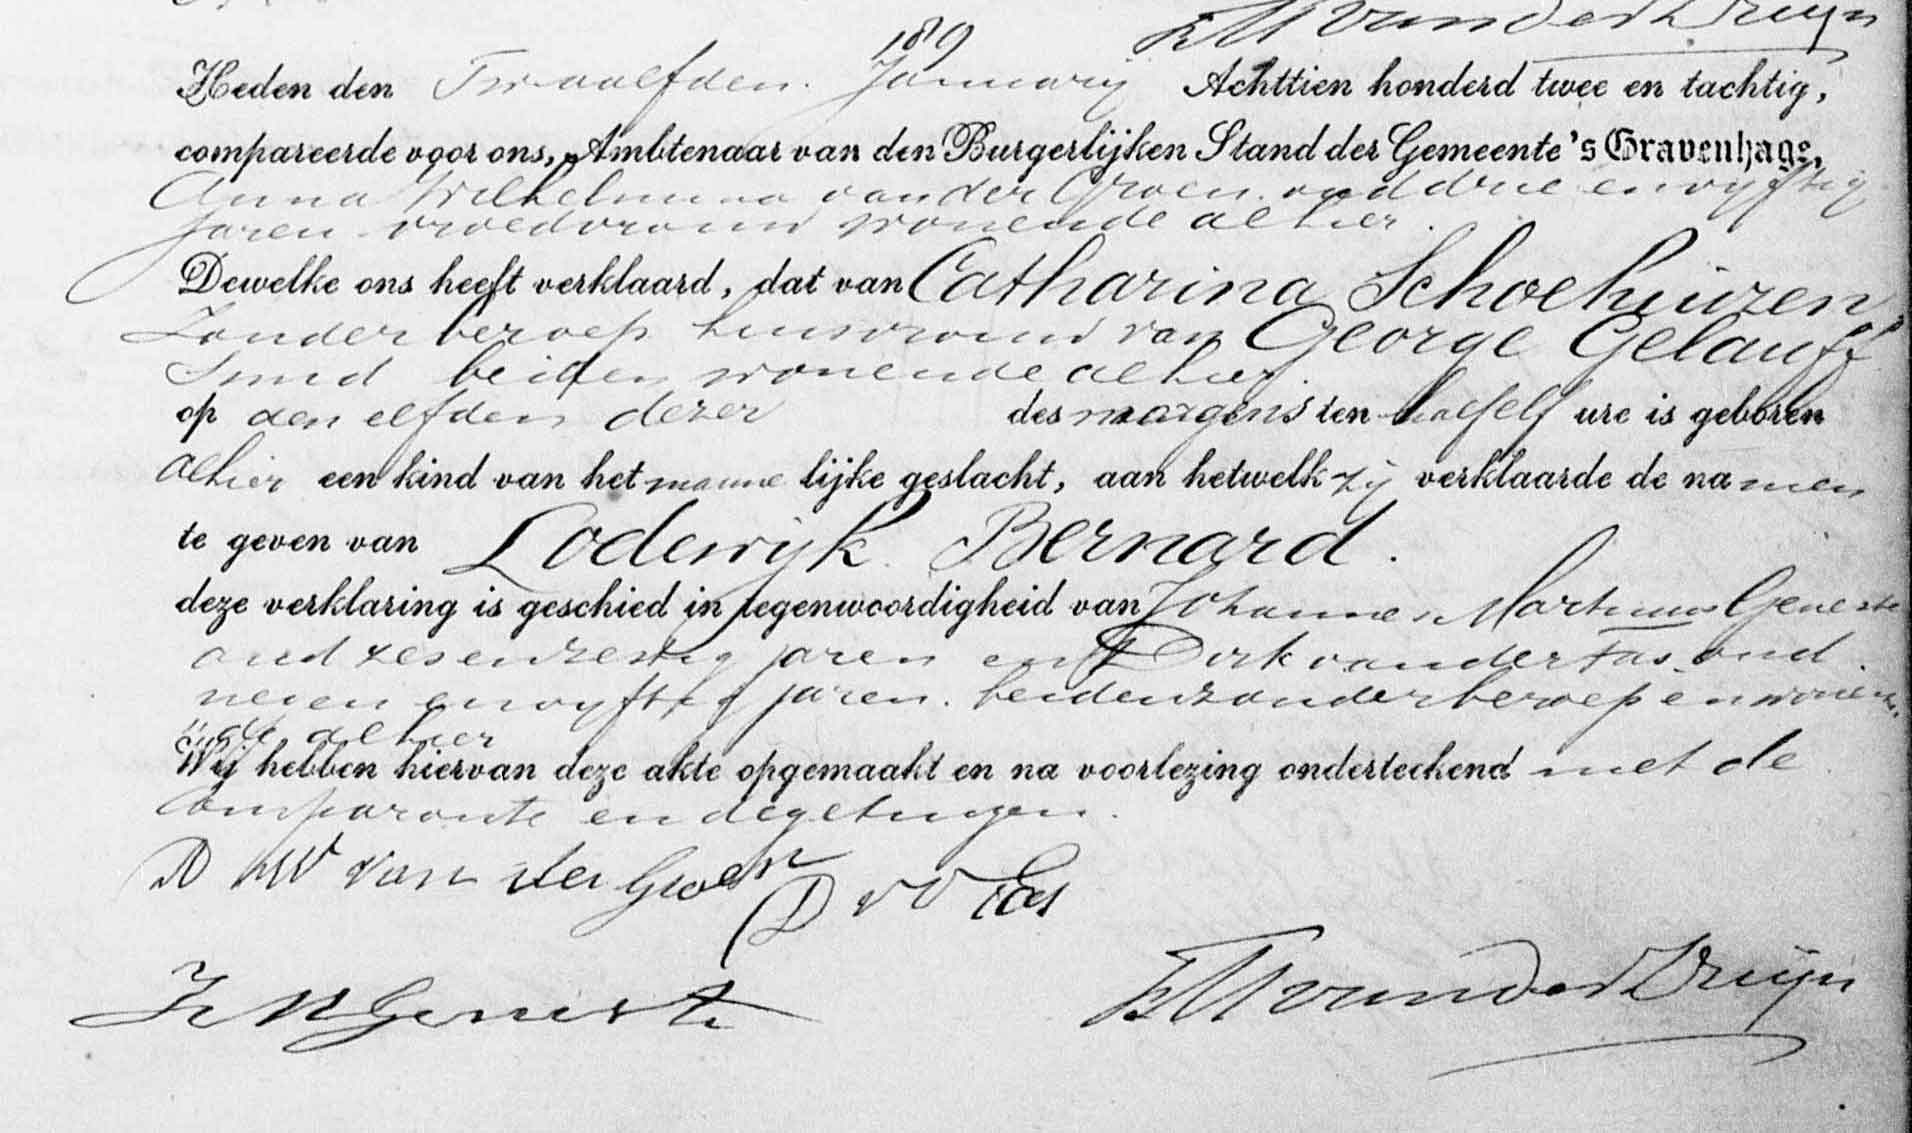 189
Heden den Twaalfden Januarij Achttien honderd twee en tachtig,
compareerde voor ons, Ambtenaar van den Burgerlijken Stand der Gemeente 's Gravenhage,
Anna Wilhelmina van der Groen oud drie en vyftig
jaren vroedvrouw wonende alhier.
Dewelke ons heeft verklaard, dat van Catharina Schoehuizen,
zonder beroep huisvrouw van George Gelauff
Smid beiden wonende alhier.
op den elfden dezer des morgens ten half elf ure is geboren
alhier een kind van het manne lijke geslacht, aan hetwelk zij verklaarde de na men
te geven van Lodewyk Bernard.
deze verklaring is geschied in tegenwoordigheid van Johannes Martinus Geneste
oud zes en zestig jaren en Dirk van der Fas oud
negen en vyftig jaren. beiden zonder beroep en wonen
de alhier
Wij hebben hiervan deze akte opgemaakt en na voorlezing onderteekend met de
comparante en de getuigen.
A W van der Groen
D v d Fas
J M Geneste